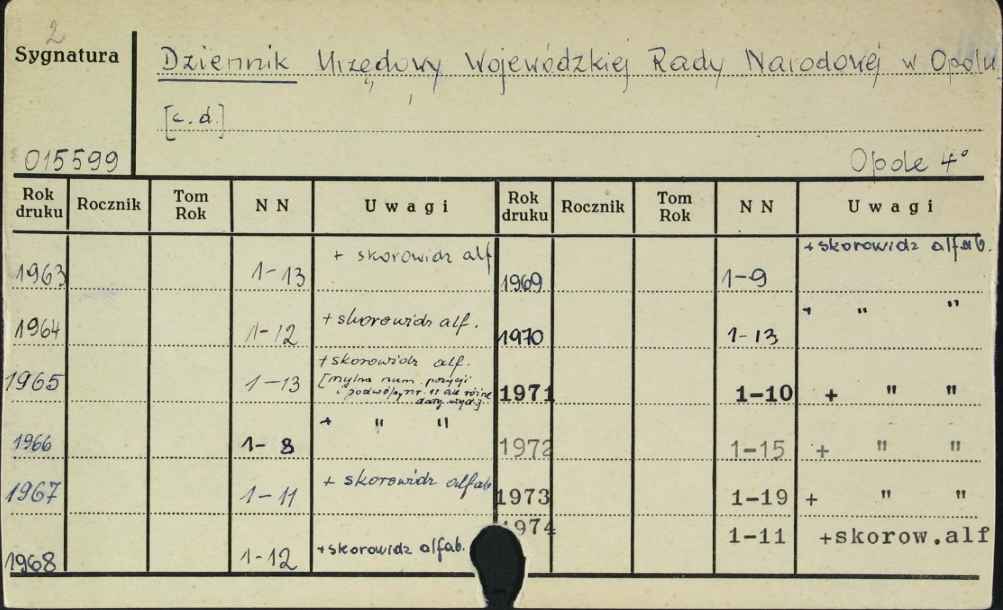 2
Sygnatura
Dziennik Urzędowy Wojewódzkiej Rady Narodowej w Opolu
[c.d.]
015599
Opole 4°
Rok druku Rocznik Tom Rok NN Uwagi Rok druku Rocznik Tom Rok NN Uwagi
1963 1-13 + skorowidz alf 1969 1-9 + skorowidz alfab.
1964 1-12 + skorowidz alf. 1970 1-13 + " "
1965 1-13 + skorowidz alf. 1971 1-10 + " "
[mylna num. pozycji
i podwójny nr. 11 ale różne
daty wyd.]
1966 1-8 + " " 1972 1-15 + " "
1967 1-11 + skorowidz alfab 1973 1-19 + " "
1968 1-12 + skorowidz alfab. 1974 1-11 +skorow.alf